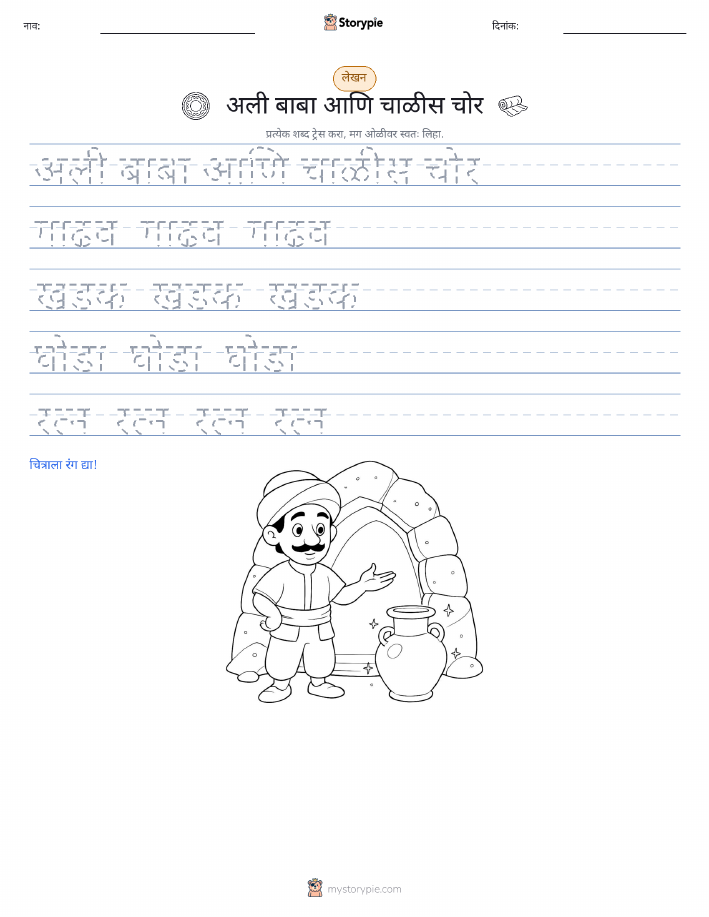 नाव:
Storypie
दिनांक:
लेखन
अली बाबा आणि चाळीस चोर
प्रत्येक शब्द ट्रेस करा, मग ओळीवर स्वतः लिहा.
अली बाबा आणि चाळीस चोर
गाढव गाढव गाढव
खडक खडक खडक
घोडा घोडा घोडा
रत्न रत्न रत्न रत्न
चित्राला रंग द्या!
mystorypie.com